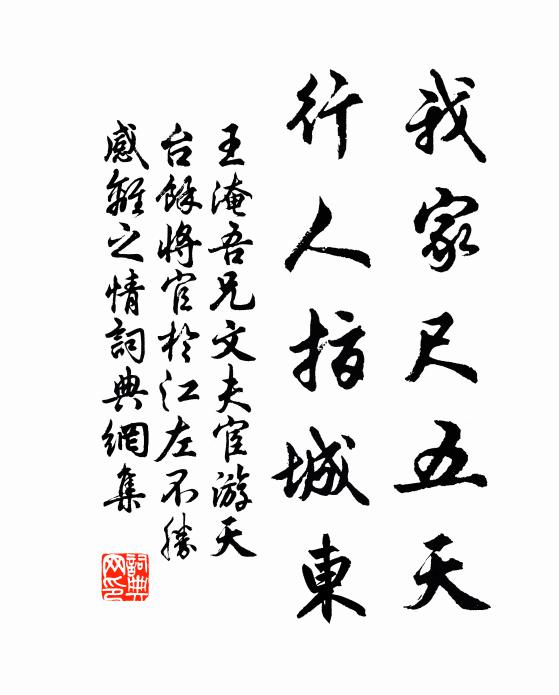 我家尺五天
行人指城東
王淹吾兄文夫宦游天
台餘將官於江左不勝
感離之情詞典網集
詞典网印